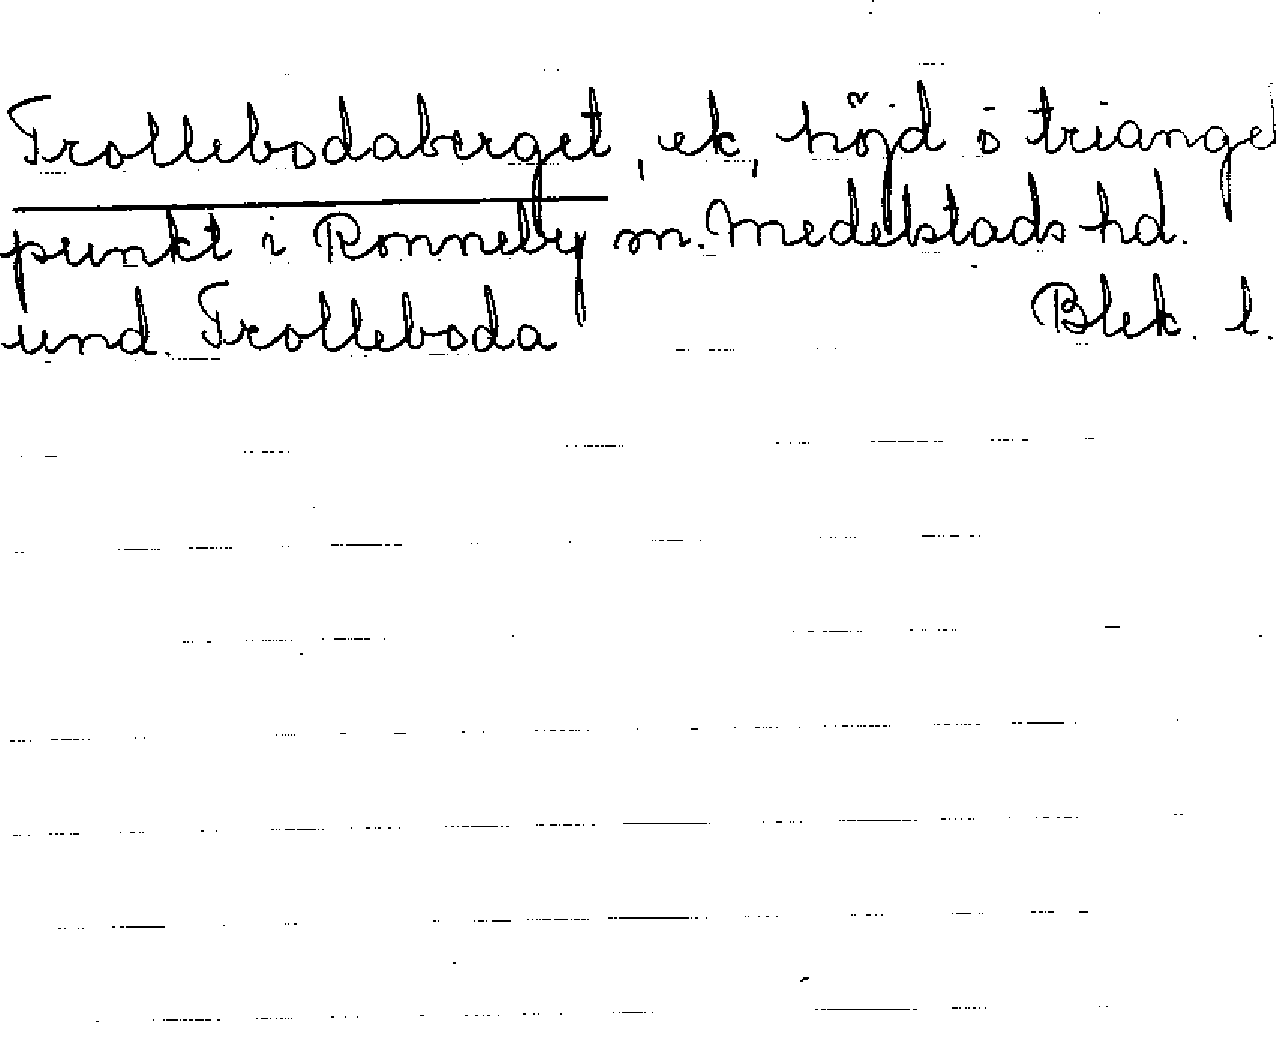 Trollebodaberget, ek, höjd o triangel
punkt i Ronneby sn. Medelstads hd.
und. Trolleboda Blek. l.